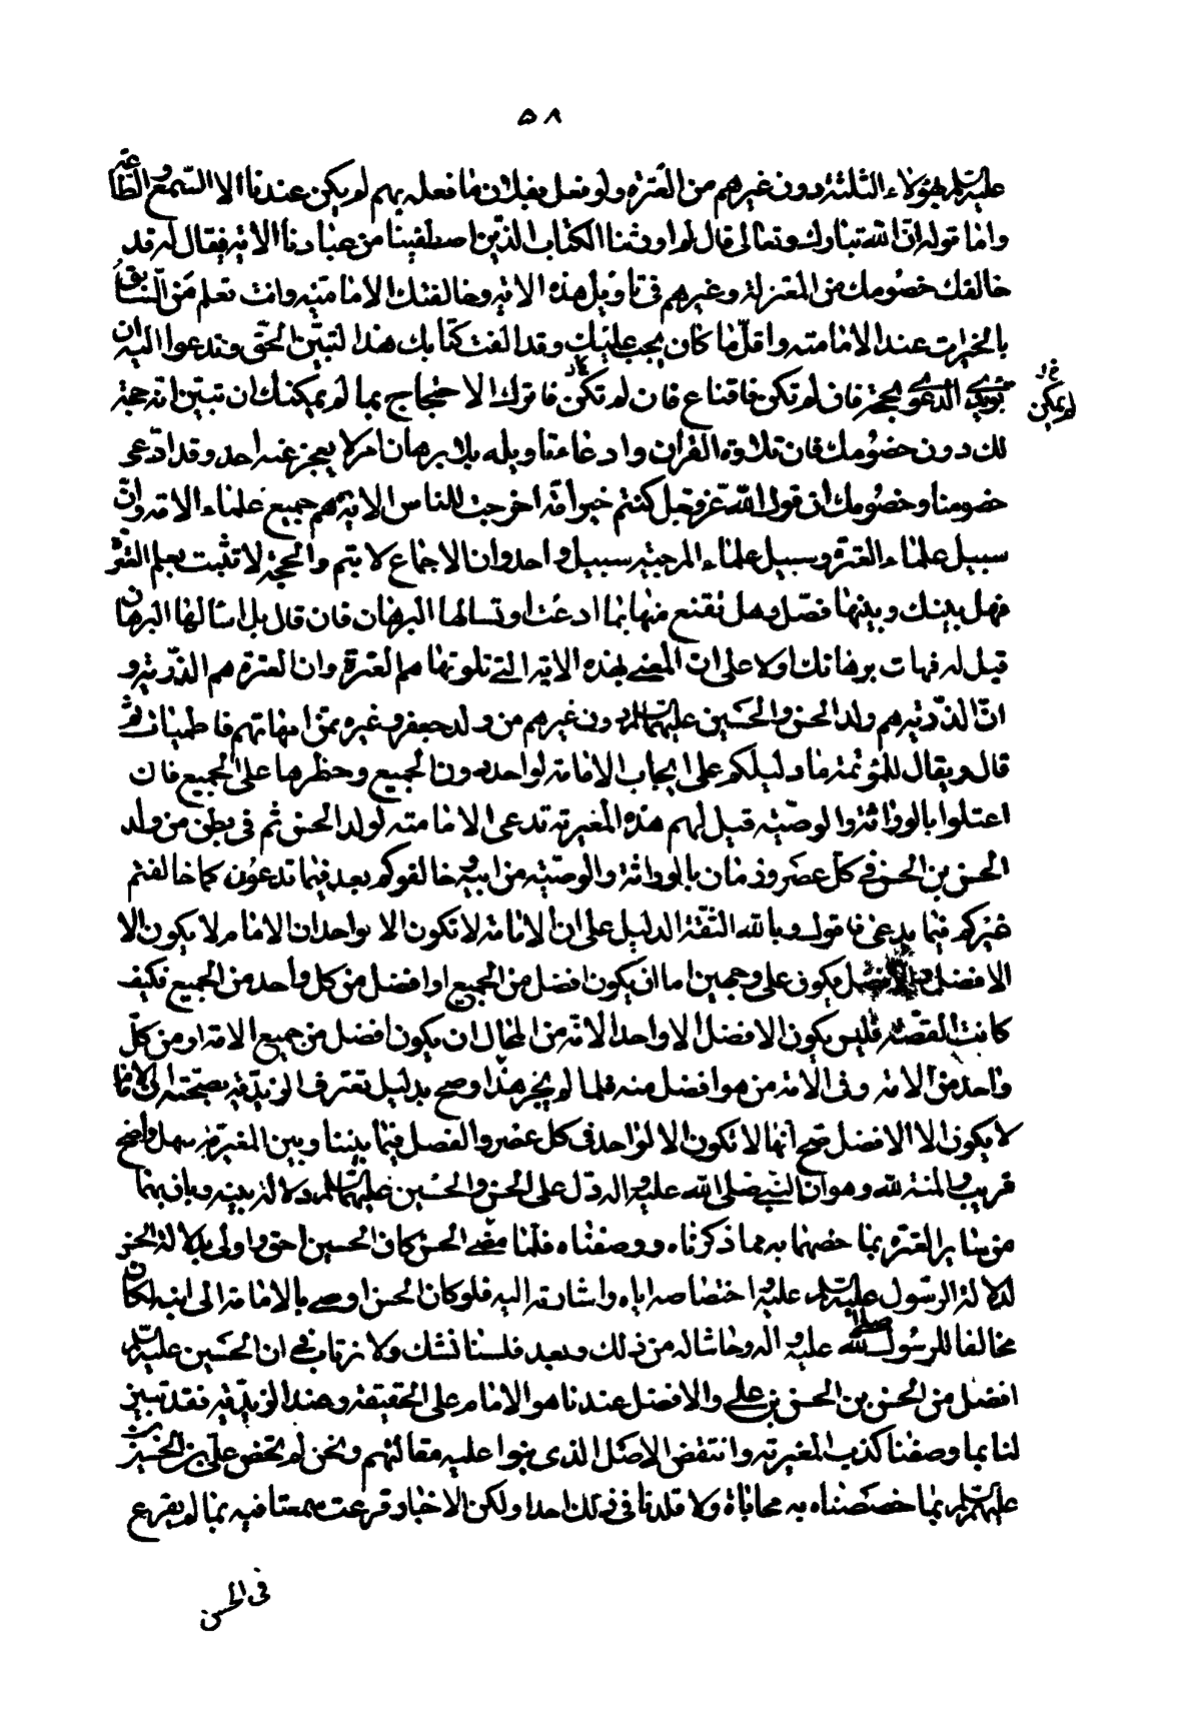 ٥٨
عليه السلام لهؤلاء الثلثة دون غيرهم من العترة ولو فعل بفلان ما فعله بهم لم يكن عندنا الا السمع والطاعة
واما قوله ان الله تبارك وتعالى قال ثم اورثنا الكتاب الذين اصطفينا من عبادنا الاية فيقال له قد
خالفك خصومك من المعتزلة وغيرهم فى تاويل هذه الاية وخالفتك الامامية وانت تعلم من السابق
بالخيرات عند الامامية واقل ما كان يجب عليك وقد الفت كتابك هذا لتبين الحق وتدعوا اليه ان
تؤيد الدعوى بحجة فان لم تكن فاقناع فان لم تكن فاترك الاحتجاج بما لم يمكنك ان تبين انه حجة
لم يمكن
لك دون خصومك فان تلاوة القران وادعاء تاويله بلا برهان امر لا يعجز عنه احد وقد ادعى
خصومنا وخصومك ان قول الله عز وجل كنتم خير امة اخرجت للناس الاية هم جميع علماء الامة وان
سبيل علماء العترة وسبيل علماء المرجئة سبيل واحد وان الاجماع لا يتم والحجة لا تثبت بعلم العترة
فهل بينك وبينها فصل وهل تقنع منها بما ادعت او تسالها البرهان فان قال بل اسالها البرهان
قيل له فهات برهانك اولا على ان المعنى بهذه الاية التى تلوتها هم العترة وان العترة هم الذرية و
ان الذرية هم ولد الحسن والحسين عليهما السلام دون غيرهم من ولد جعفر وغيره ممن امهاتهم فاطميات ثم
قال ويقال للمؤتمة ما دليلكم على ايجاب الامامة لواحد دون الجميع وحظرها على الجميع فان
اعتلوا بالوراثة والوصية قيل لهم هذه المغيرية تدعى الامامة لولد الحسن ثم فى بطن من ولد
الحسن بن الحسن فى كل عصر وزمان بالوراثة والوصية من ابيه وخالفوكم بعد فيما تدعون كما خالفتم
غيركم فيما يدعى فاقول وبالله الثقة الدليل على ان الامامة لا تكون الا لواحد ان الامام لا يكون الا
الافضل والافضل يكون على وجهين اما ان يكون افضل من الجميع او افضل من كل واحد من الجميع فكيف
كانت القصة فليس يكون الافضل الا واحدا لانه من المحال ان يكون افضل من جميع الامة او من كل
واحد من الامة وفى الامة من هو افضل منه فلما لم يجز هذا وصح بدليل تعترف الزيدية بصحته ان الامام
لا يكون الا الافضل صح انها لا تكون الا لواحد فى كل عصر والفصل فيما بيننا وبين المغيرية سهل واضح
قريب والمنة لله وهو ان النبى صلى الله عليه واله دل على الحسن والحسين عليهما السلام دلالة بينة وبان بهما
من ساير العترة بما خصهما به مما ذكرناه ووصفناه فلما مضى الحسن كان الحسين احق واولى بدلالة الحسن
لدلالة الرسول عليه السلام عليه واختصاصه اياه واشارته اليه فلو كان الحسن اوصى بالامامة الى ابنه لكان
مخالفا للرسول صلى الله عليه واله وحاشا له من ذلك وبعد فلسنا نشك ولا نرتاب فى ان الحسين عليه السلام
افضل من الحسن بن الحسن بن على والافضل عندنا هو الامام على الحقيقة وعند الزيدية فقد تبين
لنا بما وصفنا كذب المغيرية وانتقض الاصل الذى بنوا عليه مقالتهم ونحن لم نخص على بن الحسين
عليهم السلام بما خصصناه به محاباة ولا قلدنا فى ذلك احدا ولكن الاخبار قرعت سمعنا فيه بما لم يقرع
فى الحسن